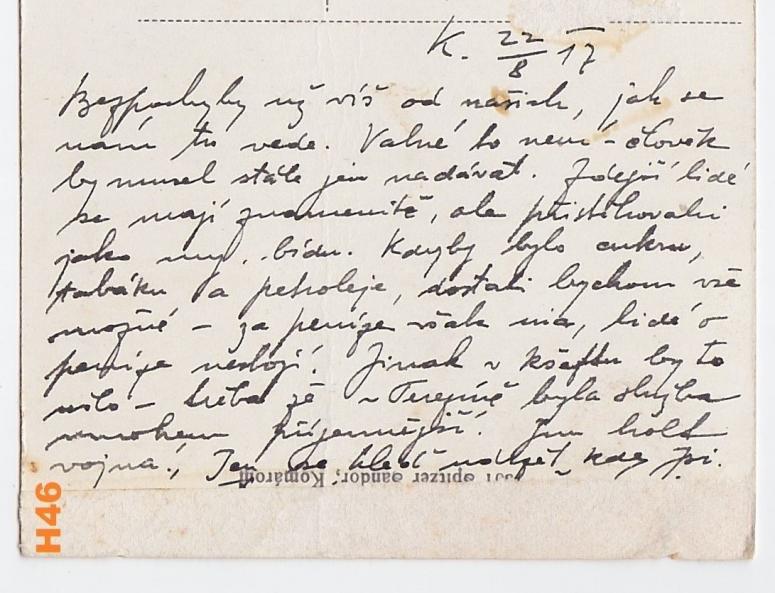 K. 22/8 17
Bezpochyby už víš od našich, jak se
nám to vede. Valné to není - člověk
by musel stále jen nadávat. Zdejší lidé
se mají znamenitě, ale přistěhovalci
jako my, bídu. Kdyby bylo cukru,
tabáku a petroleje, dostali bychom vše
možné - za peníze však nic, lidé o
peníze nestojí. Jinak v kšeftu by to
ušlo - třeba že v Terejně byla služba
mnohem příjemnější. Jsou holt
vojna. Jen se hleď
Spitzer Sándor, Komárom
H46